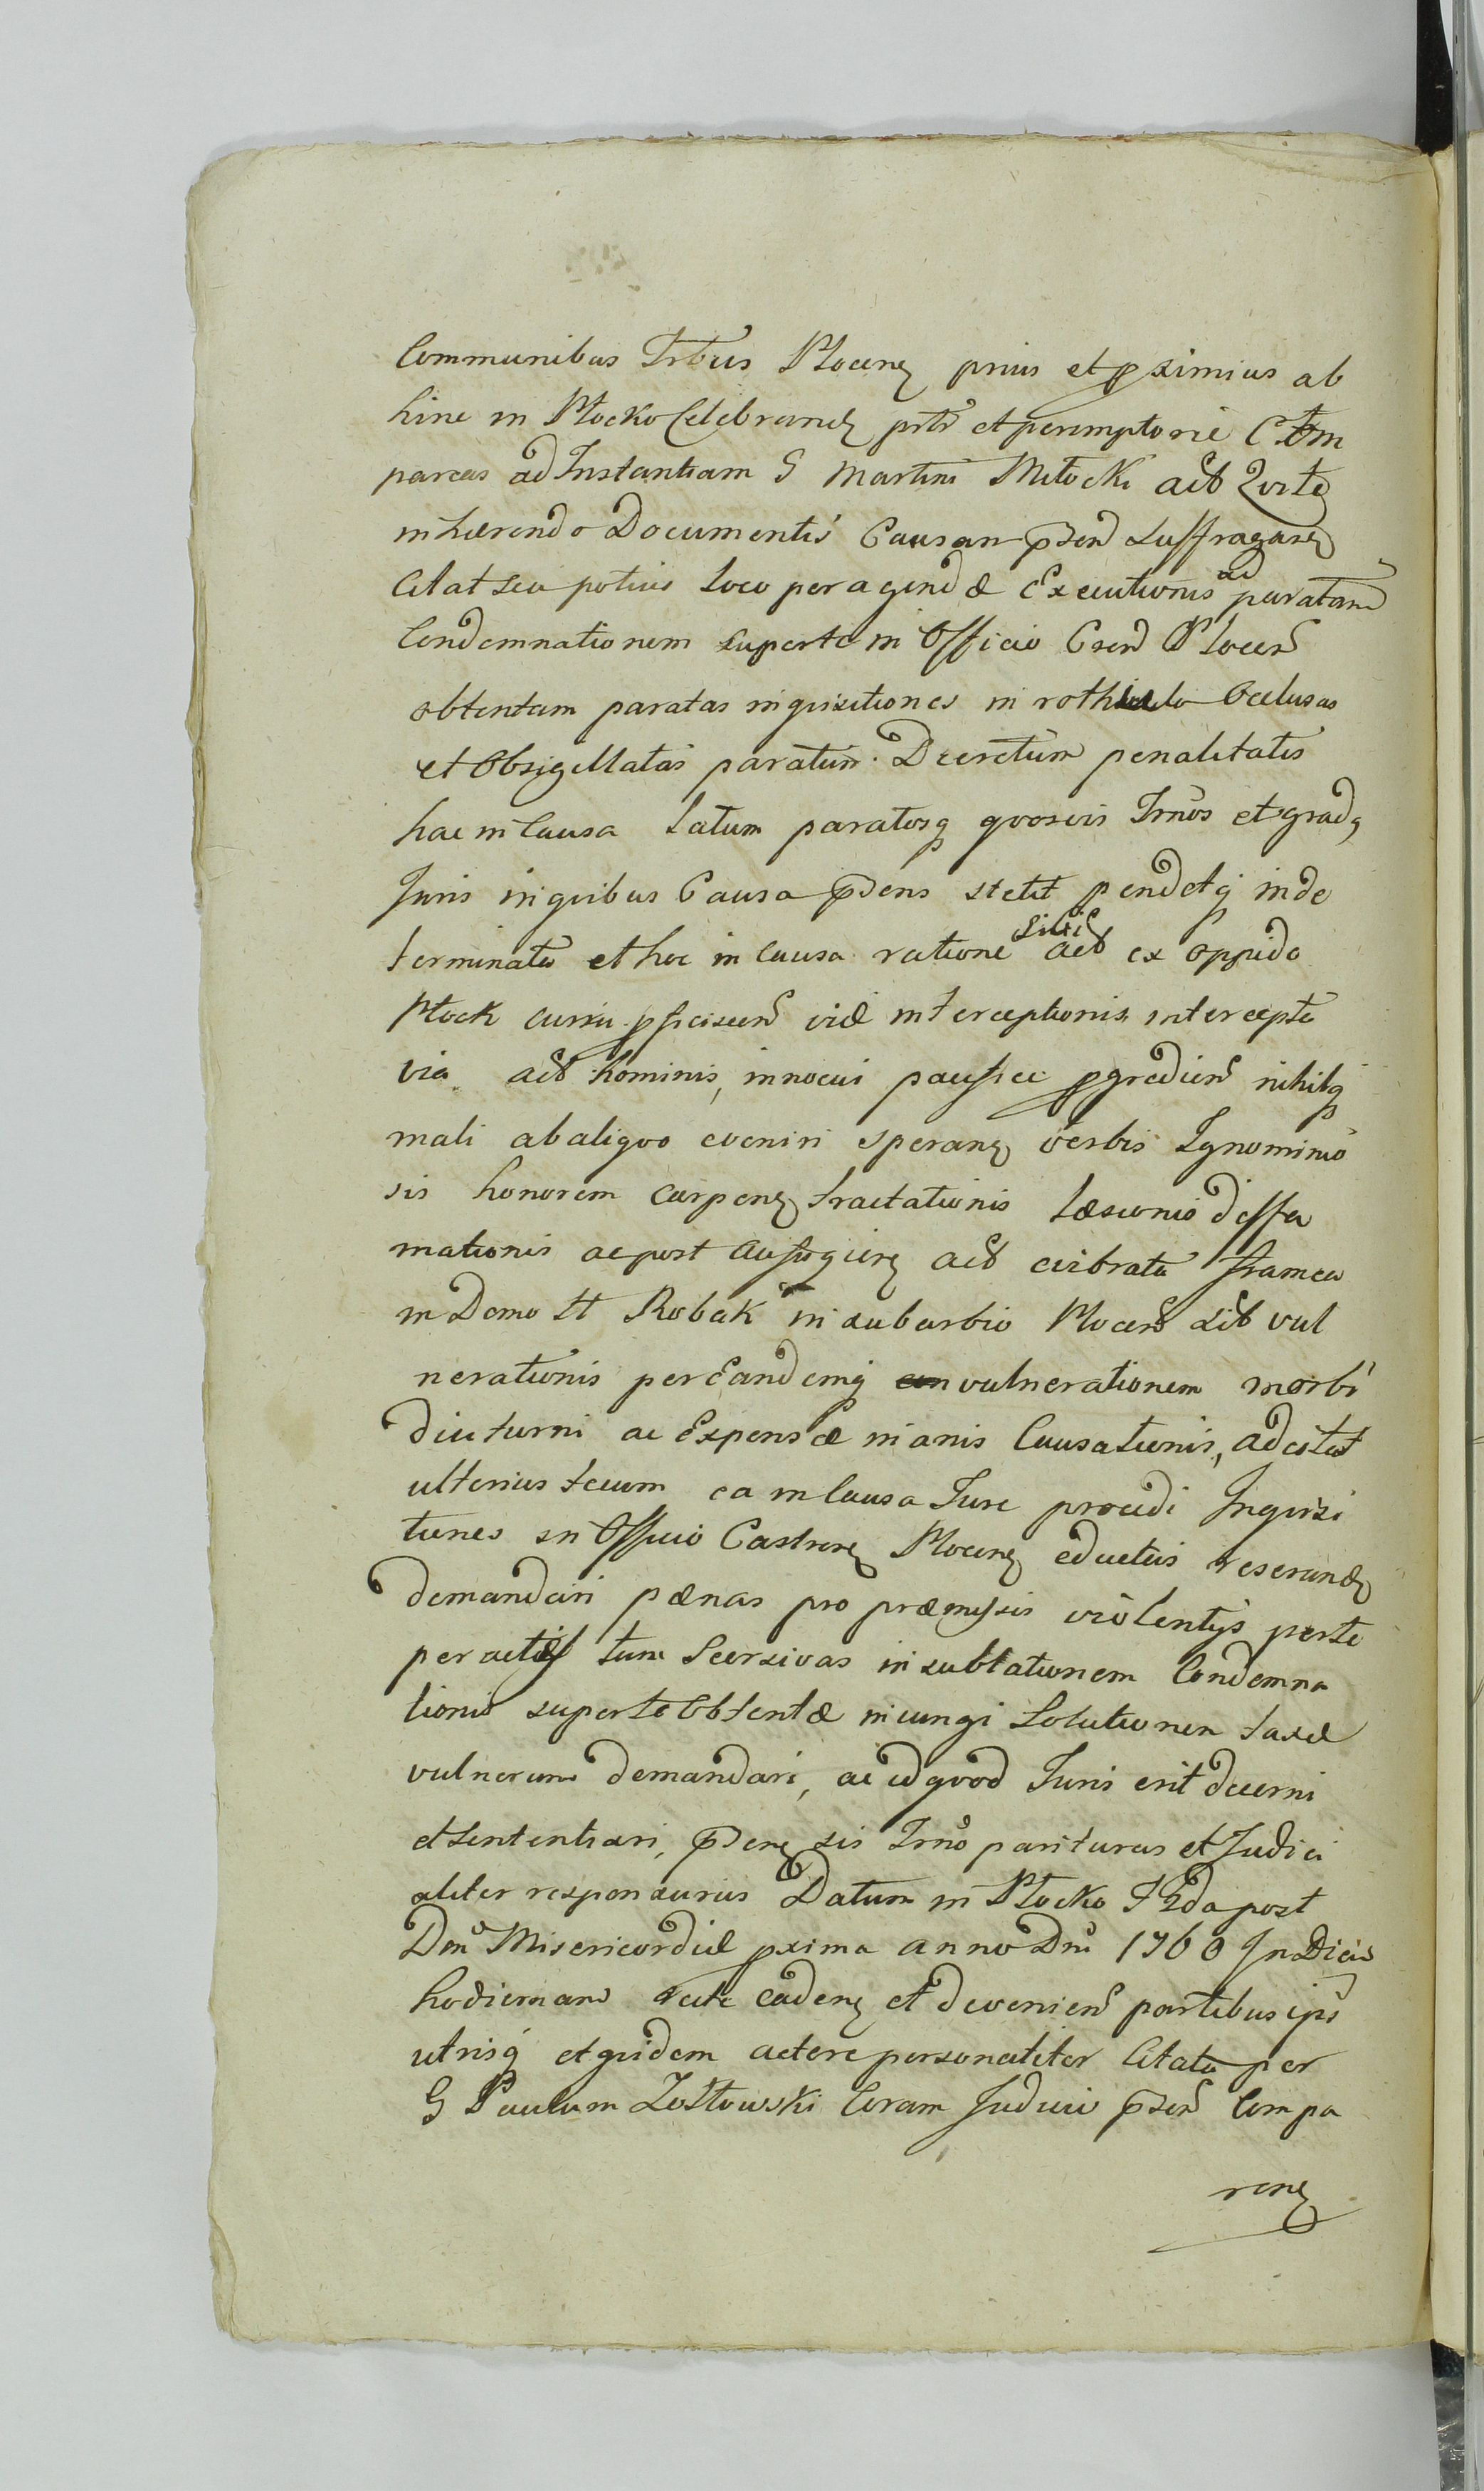 Communibus Trbus Plocen prius et pximius ab
hinc in Płocko Celebrand prtr et peremptorie C tm
pareas ad Instantiam G Martini Miłocki act Qui te
inhærendo Documentis Causam pnsen suffragan
Citat seu potius loco peragendæ Executionis ad paratam
Condemnationem super te in Officio Csen Plocen
obtentam paratas inquisitiones in rothulo Occlusas
et Obsigillatas paratum Decretum penalitatis
hac in Causa Latum paratosq quosvis Trnos et grad
Juris in quibus Causa pnsens stetit pendetq inde
terminata et hoc in Causa ratione Sibi act ex oppido
Płock curru pficiscen viæ interceptionis intercepta
via act hominis, innocui pacifice pgredien nihilq
mali ab aliquo eveniri speran verbis Ignominio
sis honorem carpen tractationis læsionis diffa
mationis ac post aufugien act vibrata framea
in Domo H Robak in suburbio Plocen sit vul
nerationis per Eandemq vulnerationem morbi
diuturni ac Expensæ inanis Causationis, ad citat
ulterius tecum ea in Causa Jure procedi Inquisi
tiones in Officio Castren Plocen eductas reserand
demandari pænas pro præmissis violentys per te
peractis tum Seorsivas in sublationem Condemna
tionis super te Obtentæ incungi Solutionem taxæ
vulnerum demandari, ac id quod Juris erit decerni
et sententiari, pnsens sis Trno pariturus et Judici
aliter responsurus Datum in Płocko F 2da post
Dnm Misericordiæ pxima anno Dni 1760 In Diem
hodiernam recte caden et devenien partibus ipis
utrisq et quidem actore personaliter Citato per
G Paulum Zołtowski Coram Judicio pnsen Compa
ren